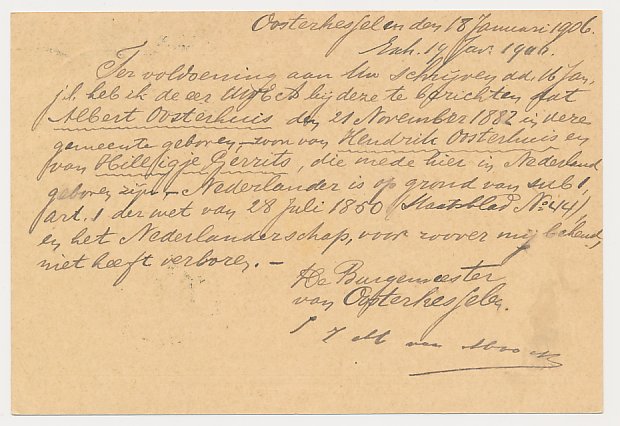 Oosterhesselen den 18 Januari 1906.
Enh. 19 Jan. 1906.
Ter voldoening aan Uw schrijven d.d. 16 Jan.
j.l. heb ik de eer UwEA bij deze te berichten dat
Albert Oosterhuis den 21 November 1882 in deze
gemeente geboren, zoon van Hendrik Oosterhuis en
van Hilligje Gerrits, die mede hier in Nederland
geboren zijn, Nederlander is op grond van sub 1,
art. 1 der wet van 28 Juli 1850 (Staatsblad No. 44),
en het Nederlanderschap, voor zoover mij bekend,
niet heeft verloren. —
De Burgemeester
van Oosterhesselen.
van